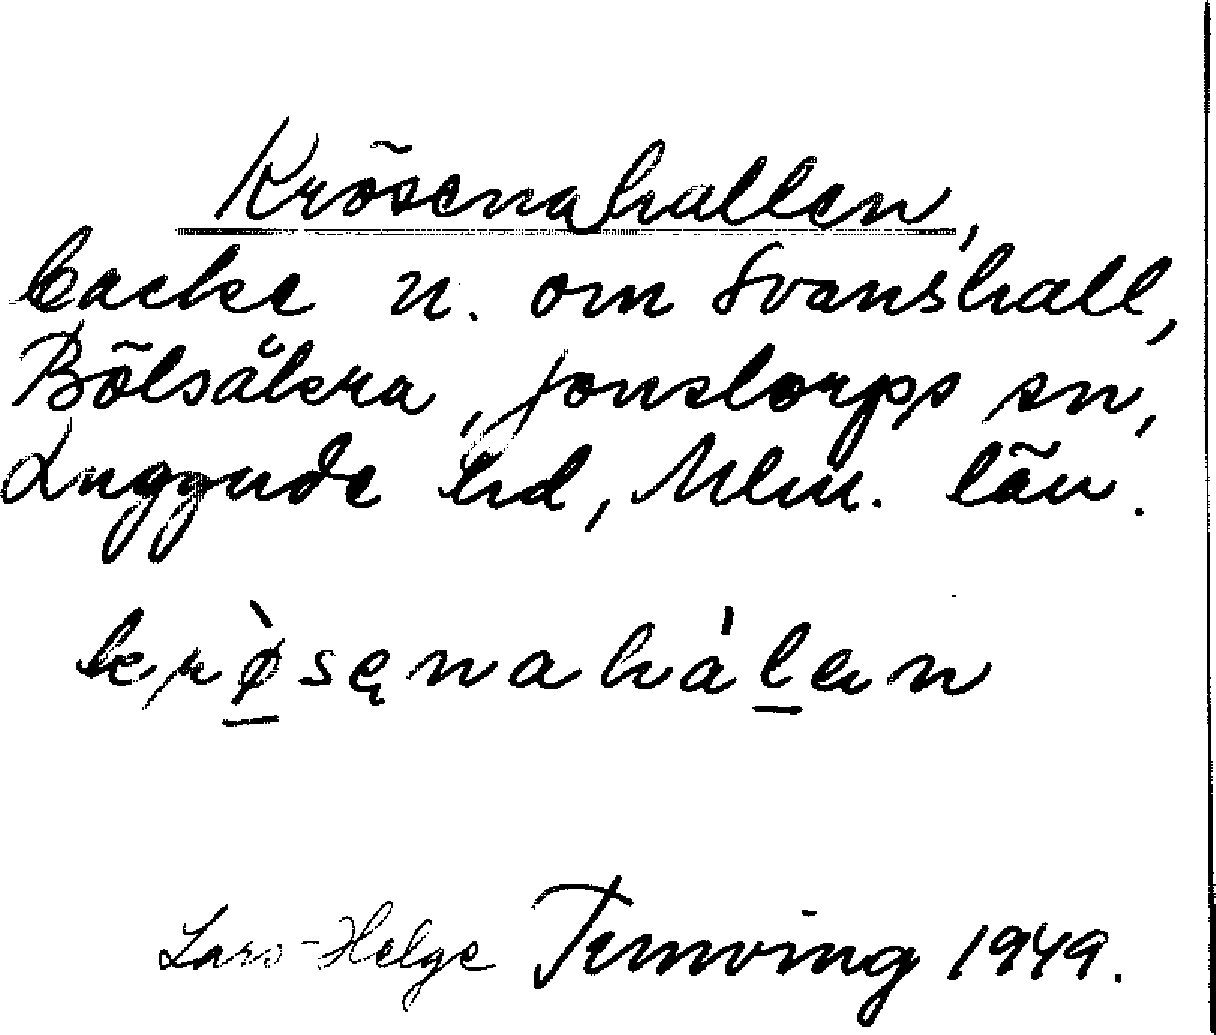 Krösenahallen,
backe n. om Svanshall,
Bölsåkra, Jonstorps sn,
Luggude hd, Mlm. län.
krø̀sęnahálen
Lars-Helge Tennving 1949.